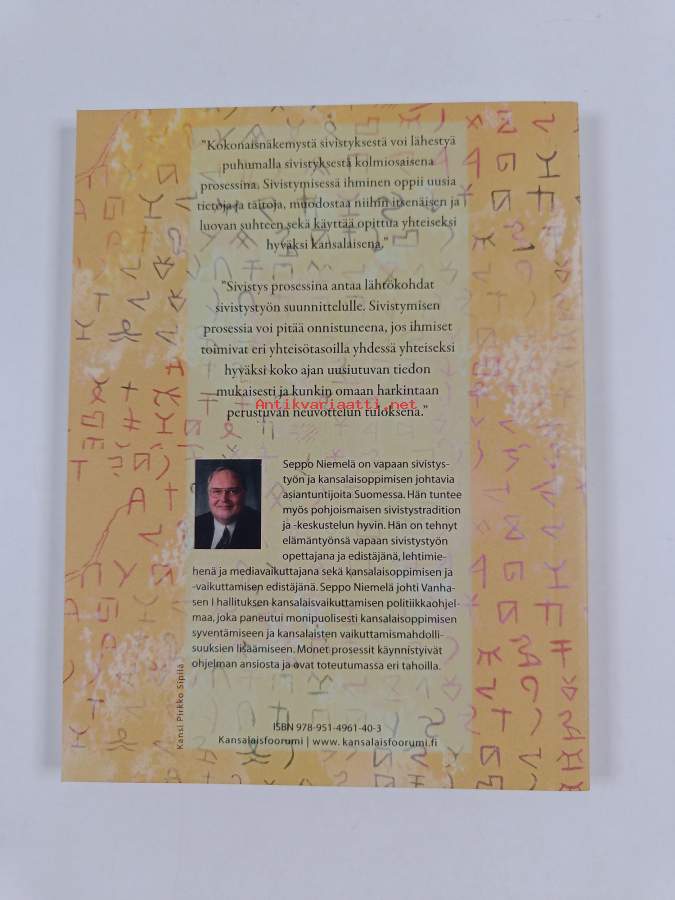 "Kokonaisnäkemystä sivistyksestä voi lähestyä
puhumalla sivistyksestä kolmiosaisena
prosessina. Sivistymisessä ihminen oppii uusia
tietoja ja taitoja, muodostaa niihin itsenäisen ja
luovan suhteen sekä käyttää opittua yhteiseksi
hyväksi kansalaisena."
"Sivistys prosessina antaa lähtökohdat
sivistystyön suunnittelulle. Sivistymisen
prosessia voi pitää onnistuneena, jos ihmiset
toimivat eri yhteisötasoilla yhdessä yhteiseksi
hyväksi koko ajan uusiutuvan tiedon
mukaisesti ja kunkin omaan harkintaan
Antikvariaatti.net
perustuvan neuvottelun tuloksena."
Seppo Niemelä on vapaan sivistys-
työn ja kansalaisoppimisen johtavia
asiantuntijoita Suomessa. Hän tuntee
myös pohjoismaisen sivistystradition
ja -keskustelun hyvin. Hän on tehnyt
elämäntyönsä vapaan sivistystyön
opettajana ja edistäjänä, lehtimie-
henä ja mediavaikuttajana sekä kansalaisoppimisen ja
-vaikuttamisen edistäjänä. Seppo Niemelä johti Vanha-
sen I hallituksen kansalaisvaikuttamisen politiikkaohjel-
maa, joka paneutui monipuolisesti kansalaisoppimisen
syventämiseen ja kansalaisten vaikuttamismahdolli-
suuksien lisäämiseen. Monet prosessit käynnistyivät
ohjelman ansiosta ja ovat toteutumassa eri tahoilla.
Kansi Pirkko Sipilä
ISBN 978-951-4961-40-3
Kansalaisfoorumi | www.kansalaisfoorumi.fi